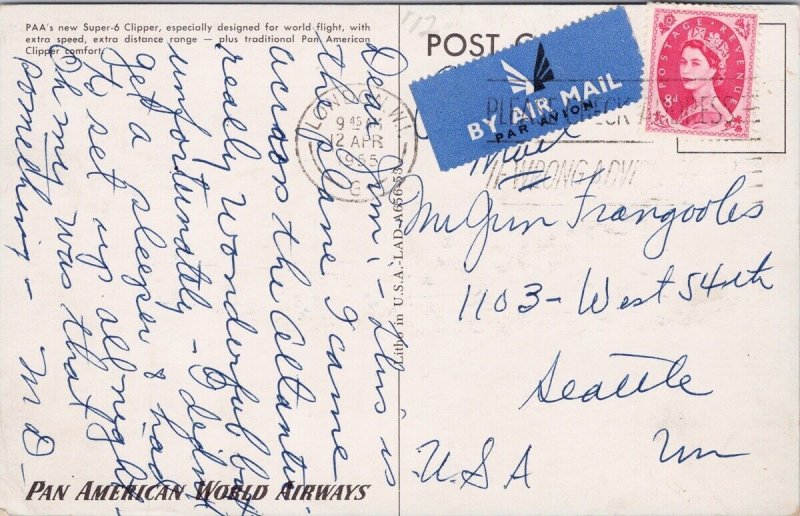 PAA's new Super-6 Clipper, especially designed for world flight, with
extra speed, extra distance range — plus traditional Pan American
Clipper comfort.
Dear Jim, - This is
the plane I came
across the Atlantic
really wonderful but
unfortunately - I didn't
get a sleeper & had
to set up all night
Oh my was that
something -
M D -
PAN AMERICAN WORLD AIRWAYS
Litho in U.S.A.-LAD-A656-53
LONDON. W.1.
9 45 AM
12 APR
1955
POST
BY AIR MAIL
PAR AVION
POSTAGE REVENUE
8d
PLEASE CHECK
IF WRONG ADVISE
Mr Jim Frangooles
1103 - West 54th
Seattle
U.S.A